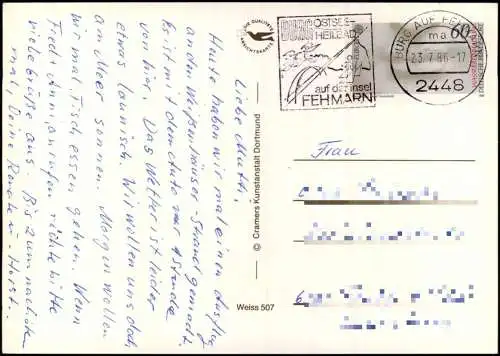 Liebe Mutti,
Heute haben wir mal einen Ausflug
an den Weißenhäuser-Strand gemacht.
ist mit dem Auto nur 1 Stunde
von hier. Das Wetter ist leider
etwas launisch. Wir wollen uns doch
am Meer sonnen. Morgen wollen
wir mal Fisch essen gehen. Wenn
Ann anrufen richte bitte
viele Grüße aus. Bis zum nächsten
mal, Deine Renate u. Horst.
Weiss 507
© Cramers Kunstanstalt Dortmund
DIE QUALITÄTS
ANSICHTSKARTE
BURG OSTSEE-
HEILBAD
auf der Insel
FEHMARN
BURG AUF FEHMARN
ma
23.7.86-17
2448
60
Frau